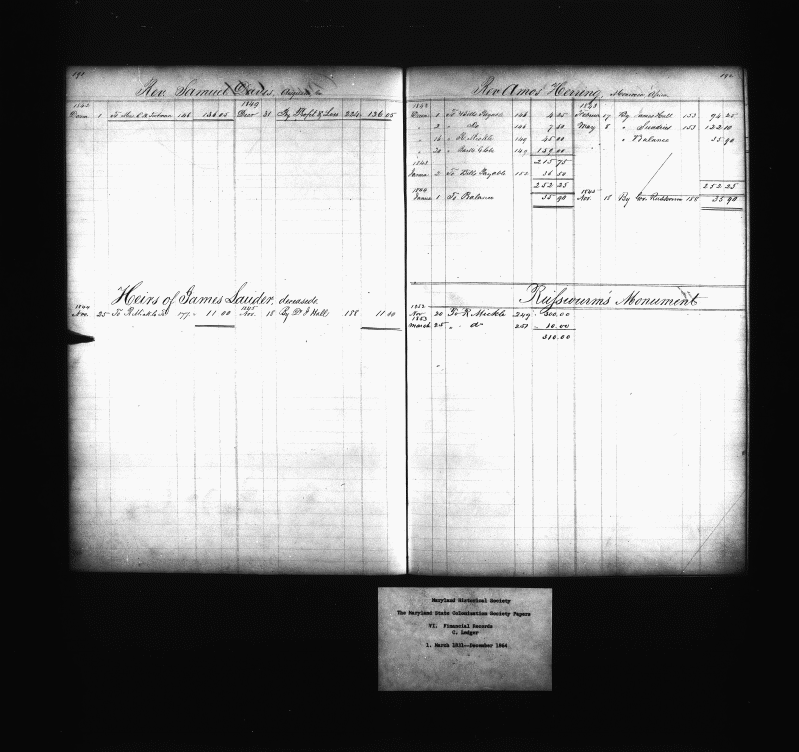 191
Rev. Samuel Davis,
1842 1849
1 To Mrs. 146 136.05 Decr 31 By Profit & Loss 224 136.05
Heirs of James Lauder, deceased.
1844 1845
Nov. 25 To R. Mickle 177 11 00 Nov. 18 By Dr. J Hall 188 11 00
191
Rev Amos Herring, Monrovia Africa
1842 1843
1 To Bills Payable 146 4 25 17 By James Hall 153 94 25
" 2 " do 146 7 50 May 8 " Sundries 153 122 10
" 16 " R. Mickle 149 45 00 " Balance 35 90
" 20 " 149 159 00
1843 215 75
2 To Bills Payable 152 36 50
252 25 252 25
1844 1845
1 To Balance 35 90 Nov. 18 By Gov. Russwurm 188 35 90
Russwurm's Monument
1852
Nov 20 To R. Mickle 249 300.00
1853
March 25 " do 251 10.00
310.00
Maryland Historical Society
The Maryland State Colonization Society Papers
VI. Financial Records
C. Ledger
1. March 1831--December 1864